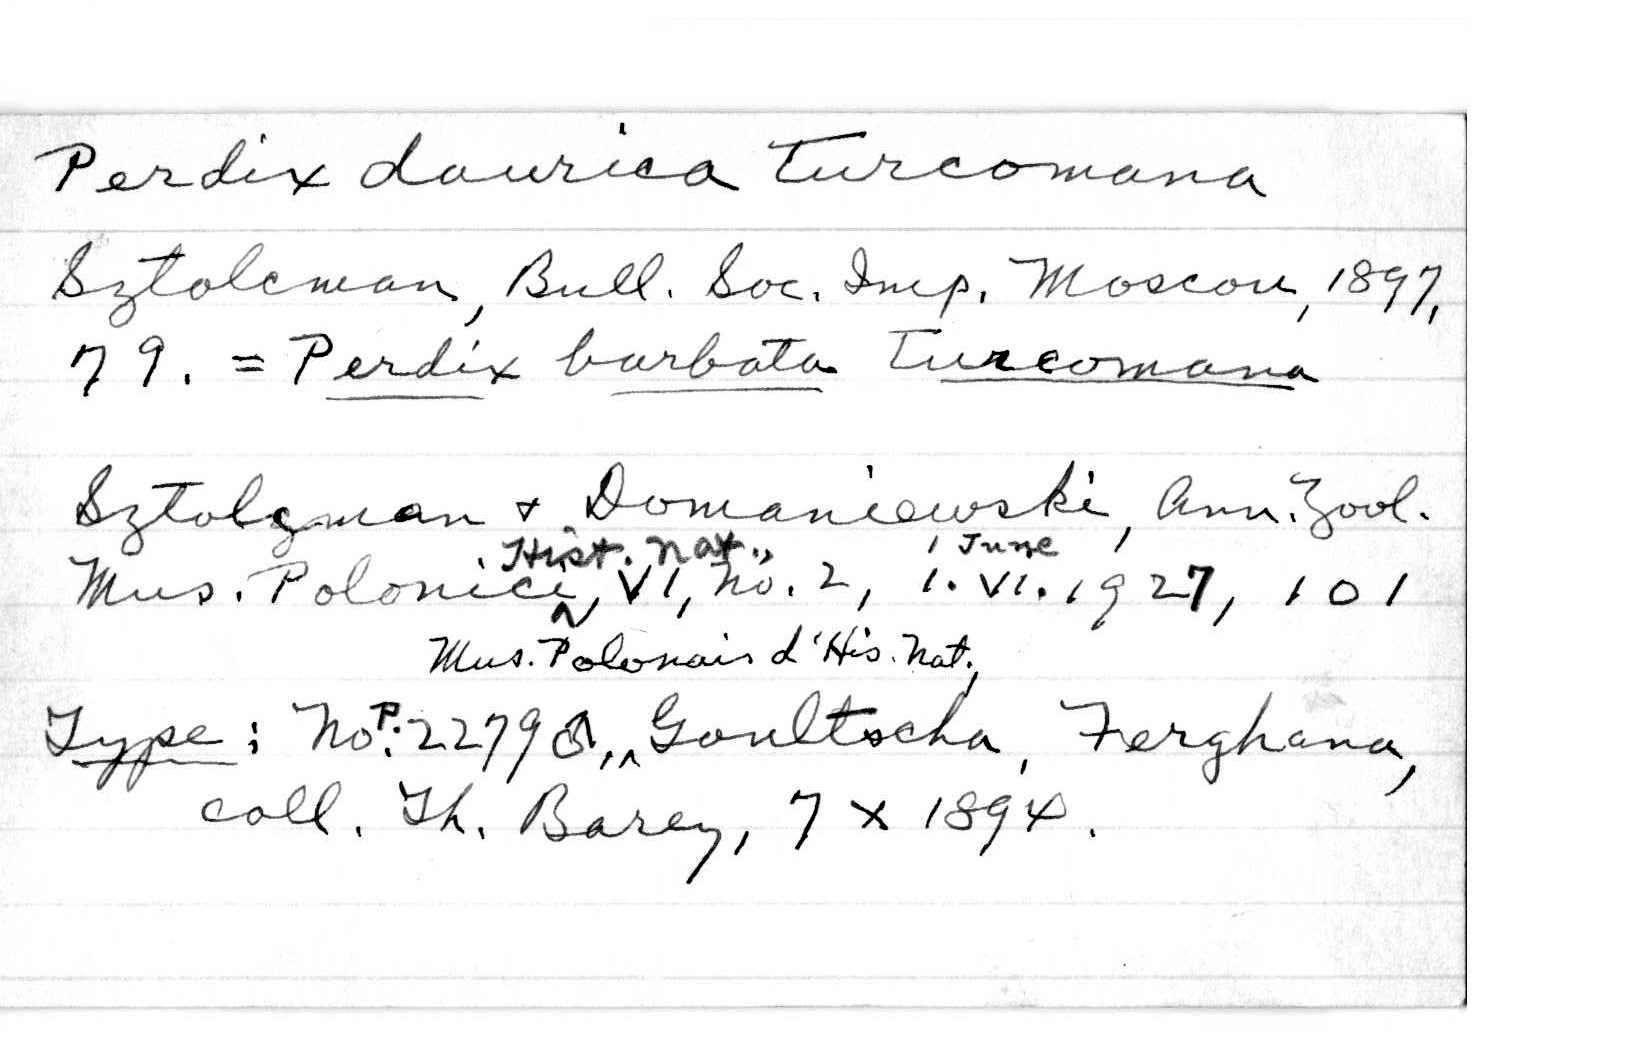 Perdix daurica turcomana
Sztolcman, Bull. Soc. Imp. Moscou, 1897,
79. = Perdix barbata turcomana
Sztolzman + Domaniewski, Ann. Zool.
Hist. Nat., June
Mus. Polonici, VI, no. 2, 1. VI. 1927, 101
Mus. Polonais d'His. Nat.,
Type: No. P. 2279 Goultscha, Ferghana,
coll. Th. Barey, 7 X 1894.